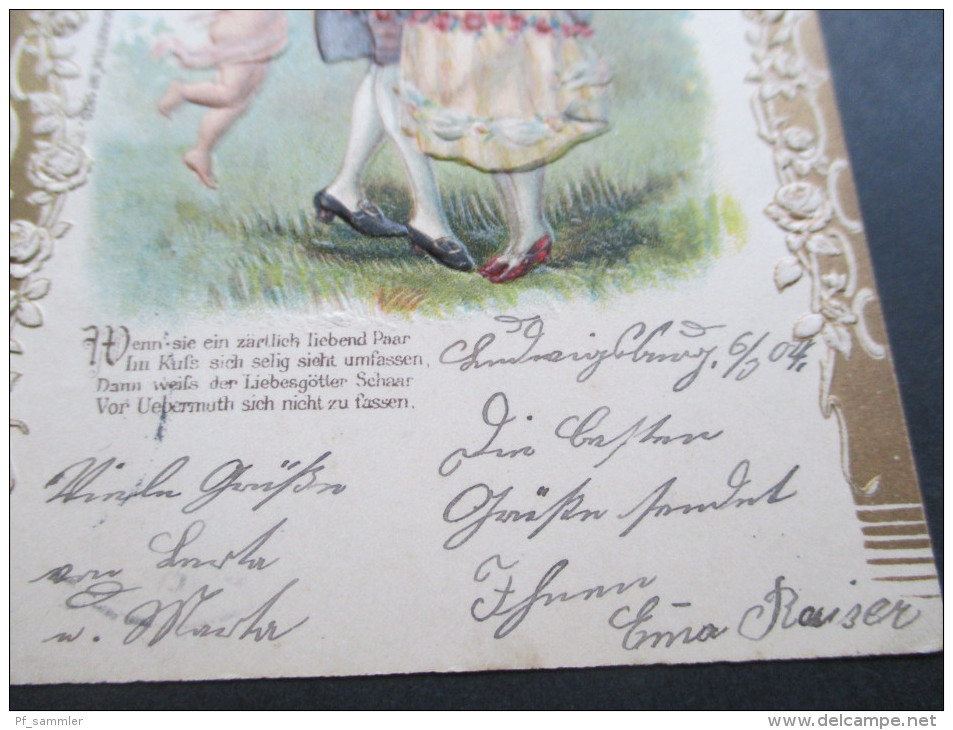 Wenn sie ein zärtlich liebend Paar
Im Kuſs sich selig sieht umfassen,
Dann weiſs der Liebesgötter Schaar
Vor Uebermuth sich nicht zu fassen.
Ludwigsburg, 6/3 04.
Die besten
Grüße sendet
Ihnen
Ema Kaiser
Viele Grüße
von Berta
u. Marta
Pf_sammler
www.delcampe.net